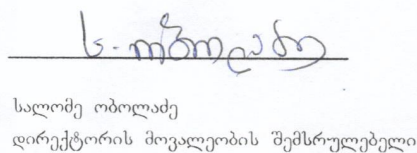 ს. ობოლაძე
სალომე ობოლაძე
დირექტორის მოვალეობის შემსრულებელი